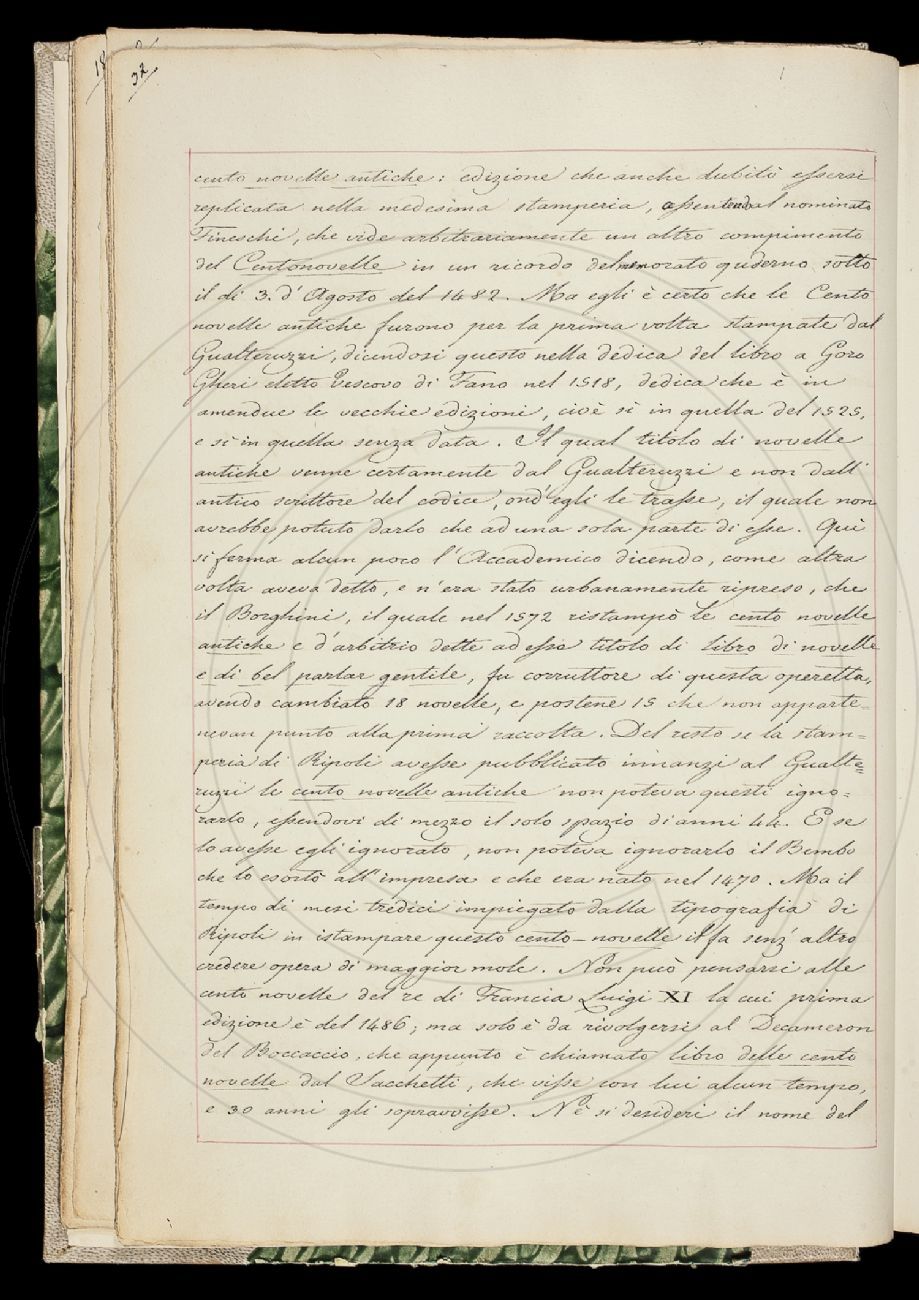 32
cento novelle antiche: edizione che anche dubitò essersi
replicata nella medesima stamperia, essendo dal nominato
Fineschi, che vide arbitrariamente un altro compimento
del Centonovelle in un ricordo del memorato quderno sotto
il dì 3. d'Agosto del 1482. Ma egli è certo che le Cento
novelle antiche furono per la prima volta stampate dal
Gualteruzzi, dicendosi questo nella dedica del libro a Goro
Gheri eletto Vescovo di Fano nel 1518, dedica che è in
amendue le vecchie edizioni, cioè sì in quella del 1525,
e sì in quella senza data. Il qual titolo di novelle
antiche venne certamente dal Gualteruzzi e non dall'
antico scrittore del codice, ond'egli le trasse, il quale non
avrebbe potuto darlo che ad una sola parte di esse. Quì
si ferma alcun poco l'Accademico dicendo, come altra
volta aveva detto, e n'era stato urbanamente ripreso, che
il Borghini, il quale nel 1572 ristampò le cento novelle
antiche e d'arbitrio dette ad esse titolo di libro di novelle
e di bel parlar gentile, fu corruttore di questa operetta,
avendo cambiato 18 novelle, e postene 15 che non apparte=
nevan punto alla prima raccolta. Del resto se la stam=
peria di Ripoli avesse pubblicato innanzi al Gualte=
ruzzi le cento novelle antiche non poteva questi igno=
rarlo, essendovi di mezzo il solo spazio di anni 44. E se
lo avesse egli ignorato, non poteva ignorarlo il Bembo
che lo esortò all'impresa e che era nato nel 1470. Ma il
tempo di mesi tredici impiegato dalla tipografia di
Ripoli in istampare questo cento-novelle il fa senz'altro
credere opera di maggior mole. Non può pensarsi alle
cento novelle del re di Francia Luigi XI la cui prima
edizione è del 1486; ma solo è da rivolgersi al Decameron
del Boccaccio, che appunto è chiamato libro delle cento
novelle dal Sacchetti, che visse con lui alcun tempo,
e 30 anni gli sopravvisse. Nè si desideri il nome del